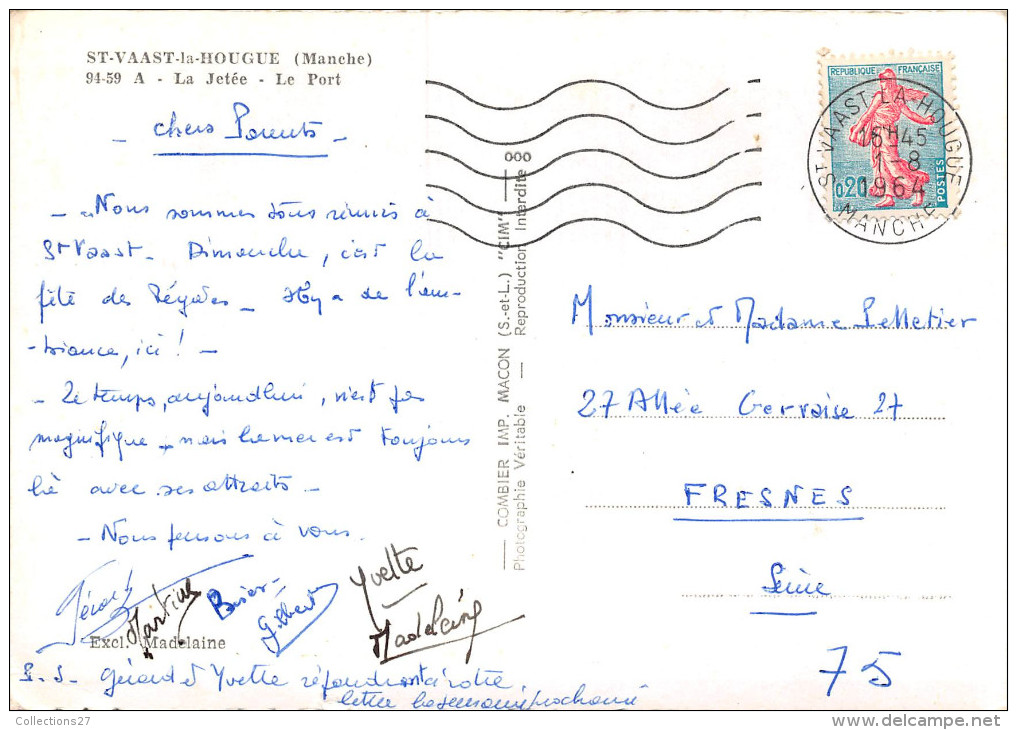 ST-VAAST-la-HOUGUE (Manche)
94-59 A - La Jetée - Le Port
- chers Parents -
- Nous sommes tous réunis à
St Vaast - Dimanche, c'est la
fête des Régates - Il y a de l'am-
-biance, ici ! -
- Le temps, aujourdhui, n'est pas
magnifique - mais la mer est toujours
là avec ses attraits -
- Nous pensons à vous.
Gérard
Martine
Bises -
Gilbert
Yvette
Madeleine
Excl. Madelaine
P.S - Gérard et Yvette répondront à votre
lettre la semaine prochaine
COMBIER IMP. MACON (S.-et-L.) "CIM"
Photographie Véritable — Reproduction Interdite
000
REPUBLIQUE FRANÇAISE
0,20
POSTES
ST-VAAST-LA-HOUGUE
16H45
1-8
1964
MANCHE
Monsieur et Madame Pelletier
27 Allée Gervaise 27
FRESNES
Seine
75
Collections27
delcampe.net